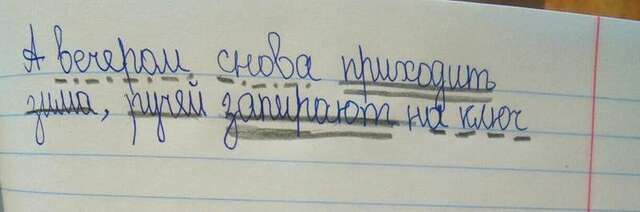 А вечером снова приходить
зима, ручей запирают на ключ